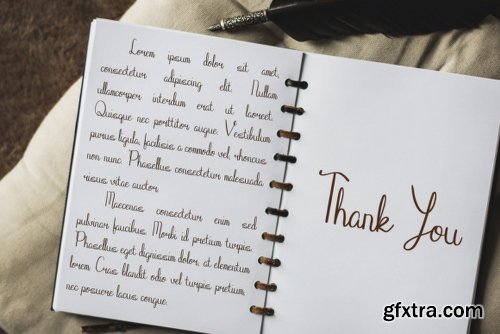 Lorem ipsum dolor sit amet,
consectetur adipiscing elit. Nullam
ullamcorper interdum erat ut laoreet.
Quisque nec porttitor augue. Vestibulum
purus ligula, facilisis a commodo vel, rhoncus
non nunc. Phasellus consectetur malesuada
risus vitae auctor.
Maecenas consectetur enim sed
pulvinar faucibus. Morbi id pretium turpis.
Phasellus eget dignissim dolor, at elementum
lorem. Cras blandit odio vel turpis pretium,
nec posuere lacus congue.
Thank You
gfxtra.com